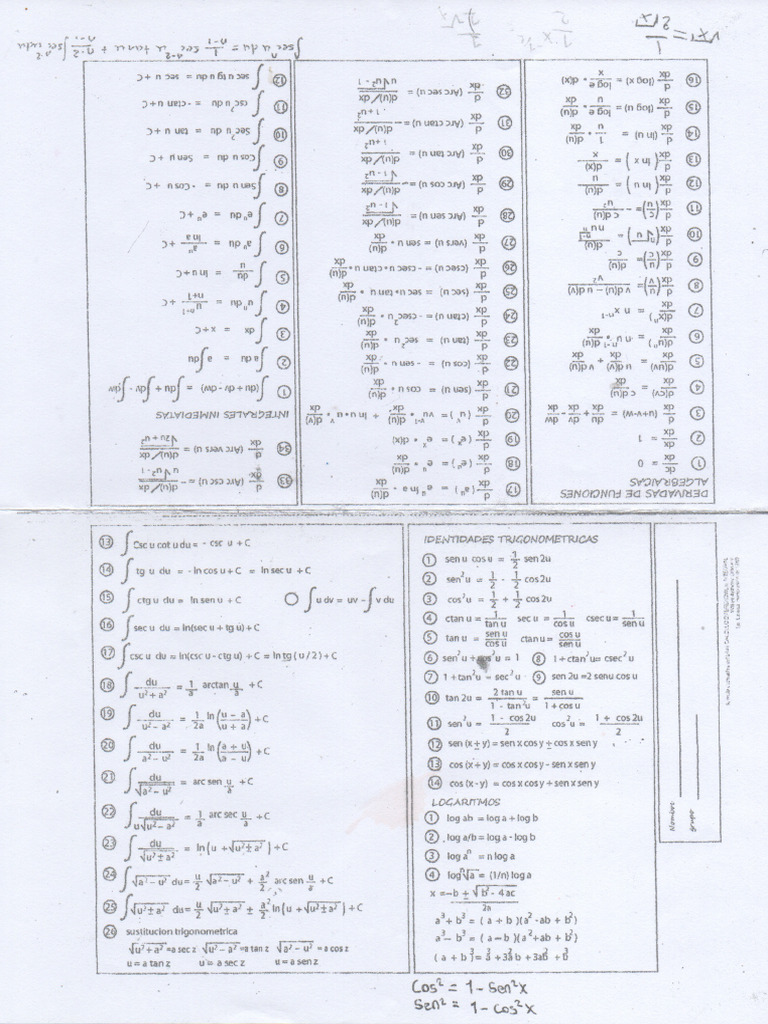 DERIVADAS DE FUNCIONES
ALGEBRAICAS
① dc/dx = 0
② dx/dx = 1
③ d/dx (u+v-w) = du/dx + dv/dx dw/dx
④ d(cv)/dx = c d(u)/dx
⑤ d(uv)/dx = u d(v)/dx + v d(u)/dx
⑥ d(uⁿ)/dx = n uⁿ⁻¹ d(u)/dx
⑦ d(xⁿ)/dx = n xⁿ⁻¹
⑧ d/dx (u/v) = v d(u) - u d(v) / v²
⑨ d/dx (u/c) = d(u)/c
⑪ d/dx (c/u) = - c d(u)/u²
⑫ d/dx (ln u) = d(u)/u
⑬ d/dx (ln x) = d(x)/x
⑭ d/dx (ln u) = 1/u • d(u)/dx
⑮ d/dx (log u) = log e/u • d(u)
⑯ d/dx (log x) = log e/x • d(x)
⑰ d/dx (aᵘ) = aᵘ ln a • d(u)/dx
⑱ d/dx (eᵘ) = eᵘ • d(u)/dx
⑲ d/dx (eˣ) = eˣ • d(x)
⑳ d/dx (uᵛ) = vuᵛ⁻¹ • d(u)/dx + ln u • uᵛ d(v)/dx
㉑ d/dx (sen u) = cos u • d(u)/dx
㉒ d/dx (cos u) = - sen u • d(u)/dx
㉓ d/dx (tan u) = sec² u • d(u)/dx
㉔ d/dx (ctan u) = - csec² u • d(u)/dx
㉕ d/dx (sec u) = sec u • tan u • d(u)/dx
㉖ d/dx (csec u) = - csec u • ctan u • d(u)/dx
㉗ d/dx (vers u) = sen u • d(u)/dx
㉘ d/dx (Arc sen u) = d(u)/dx / √1 - u²
㉙ d/dx (Arc cos u) = - d(u)/dx / √1 - u²
㉚ d/dx (Arc tan u) = d(u)/dx / 1+u²
㉛ d/dx (Arc ctan u) = - d(u)/dx / 1+u²
㉜ d/dx (Arc sec u) = d(u)/dx / u√u² - 1
㉝ d/dx (Arc csc u) = - d(u)/dx / u√u² - 1
㉞ d/dx (Arc vers u) = d(u)/dx / √2u + u²
INTEGRALES INMEDIATAS
① ∫(du + dv - dw) = ∫du + ∫dv - ∫dw
② ∫a du = a∫du
③ ∫dx = x + C
④ ∫uⁿ du = uⁿ⁻¹/n+1 + C
⑤ ∫du/u = ln u + C
⑥ ∫aᵘ du = aᵘ/ln a + C
⑦ ∫eᵘ du = eᵘ + C
⑧ ∫Sen u du = - Cos u + C
⑨ ∫Cos u du = Sen μ + C
⑩ ∫Sec² u du = tan u + C
⑪ ∫csc² u du = - ctan u + C
⑫ ∫sec u tg u du = sec u + C
∫secⁿ u du = 1/n-1 secⁿ⁻² u tan u + n-2/n-1 ∫secⁿ⁻² u du
⑬ ∫Csc u cot u du = - csc u + C
⑭ ∫tg u du = - ln cos u + C = ln sec u + C
⑮ ∫ctg u du = ln sen u + C ○ ∫u dv = uv - ∫v du
⑯ ∫sec u du = ln(sec u + tg u) + C
⑰ ∫csc u du = ln(csc u - ctg u) + C = ln tg (u/2) + C
⑱ ∫du/u² + a² = 1/a arctan u/a + C
⑲ ∫du/u² - a² = 1/2a ln (u - a/u + a) + C
⑳ ∫du/a² - u² = 1/2a ln (a + u/a - u) + C
㉑ ∫du/√a² - u² = arc sen u/a + C
㉒ ∫du/u√u² - a² = 1/a arc sec u/a + C
㉓ ∫du/√u² ± a² = ln(u + √u² ± a²) + C
㉔ ∫√a² - u² du = u/2 √a² - u² + a²/2 arc sen u/a + C
㉕ ∫√u² ± a² du = u/2 √u² ± a² ± a²/2 ln(u + √u² ± a²) + C
㉖ sustitucion trigonometrica
√u² + a² = a sec z √u² - a² = a tan z √a² - u² = a cos z
u = a tan z u = a sec z u = a sen z
IDENTIDADES TRIGONOMETRICAS
① sen u cos u = 1/2 sen 2u
② sen² u = 1/2 - 1/2 cos 2u
③ cos² u = 1/2 + 1/2 cos 2u
④ ctan u = 1/tan u sec u = 1/cos u csec u = 1/sen u
⑤ tan u = sen u/cos u ctan u = cos u/sen u
⑥ sen² u + cos² u = 1 ⑧ 1 + ctan² u = csec² u
⑦ 1 + tan² u = sec² u ⑨ sen 2u = 2 senu cos u
⑩ tan 2u = 2 tan u/1 - tan² u = sen u/1 + cos u
⑪ sen² u = 1 - cos 2u/2 cos² u = 1 + cos 2u/2
⑫ sen (x ± y) = sen x cos y ± cos x sen y
⑬ cos (x + y) = cos x cos y - sen x sen y
⑭ cos (x - y) = cos x cos y + sen x sen y
LOGARITMOS
① log ab = log a + log b
② log a/b = log a - log b
③ log aⁿ = n log a
④ log ⁿ√a = (1/n) log a
x = -b ± √b² - 4ac / 2a
a³ + b³ = (a + b)(a² - ab + b²)
a³ - b³ = (a - b)(a² + ab + b²)
(a + b)³ = a³ + 3a²b + 3ab² + b³
Nombre
grupo
Cos² = 1 - Sen²x
Sen² = 1 - Cos²x